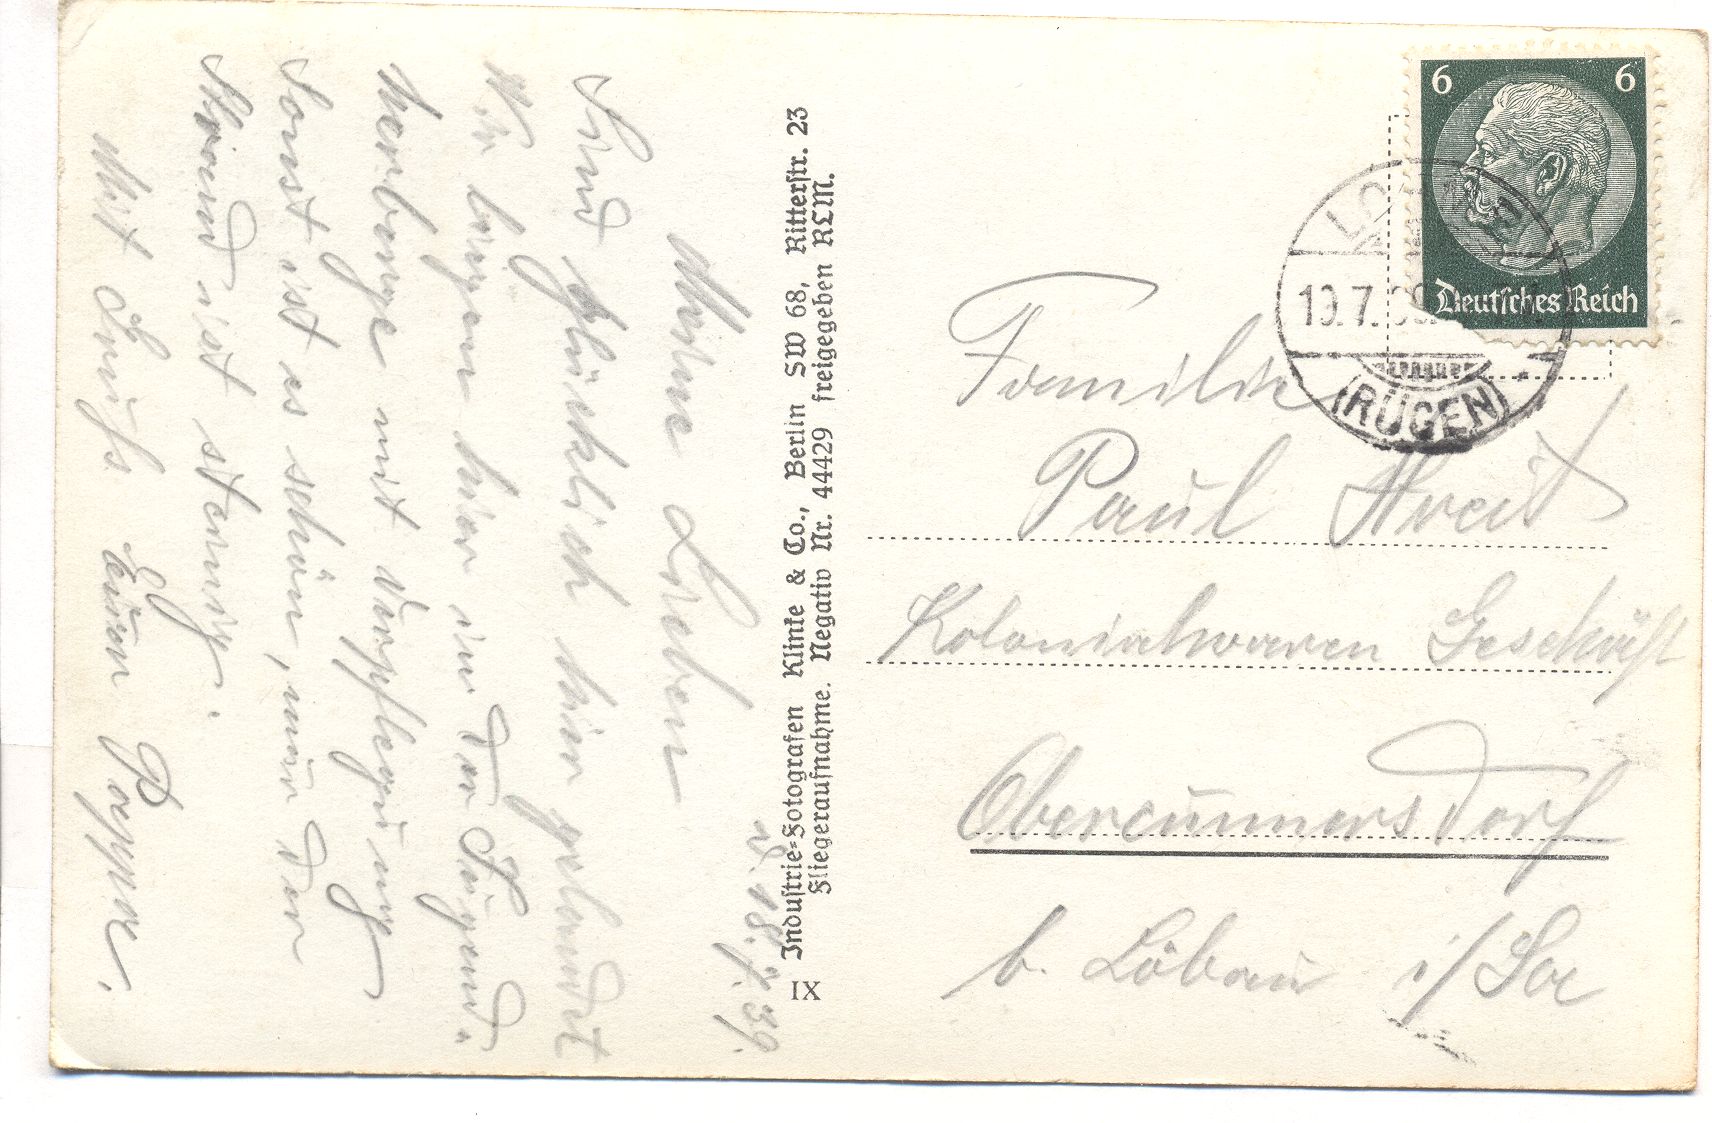 d. 18.7.39.
Meine Lieben
Sind glücklich hier gelandet
Wir liegen hier in der Jugend-
herberge mit Verpflegung
Sonst ist es schön, nur der
Strand ist steinig.
Mit Gruß Euer
Industrie-Fotografen Klinke & Co., Berlin SW 68, Ritterstr. 23
Fliegeraufnahme. Negativ Nr. 44429 freigegeben RLM.
IX
6 6
Deutsches Reich
LOHME
19.7.39
(RÜGEN)
Familie
Paul
Kolonialwaren Geschäft
Obercunnersdorf
b. Löbau i/Sa